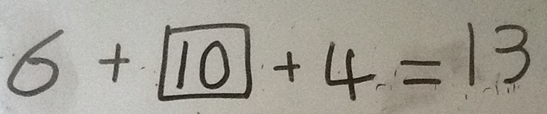 6 + 10 + 4 = 13